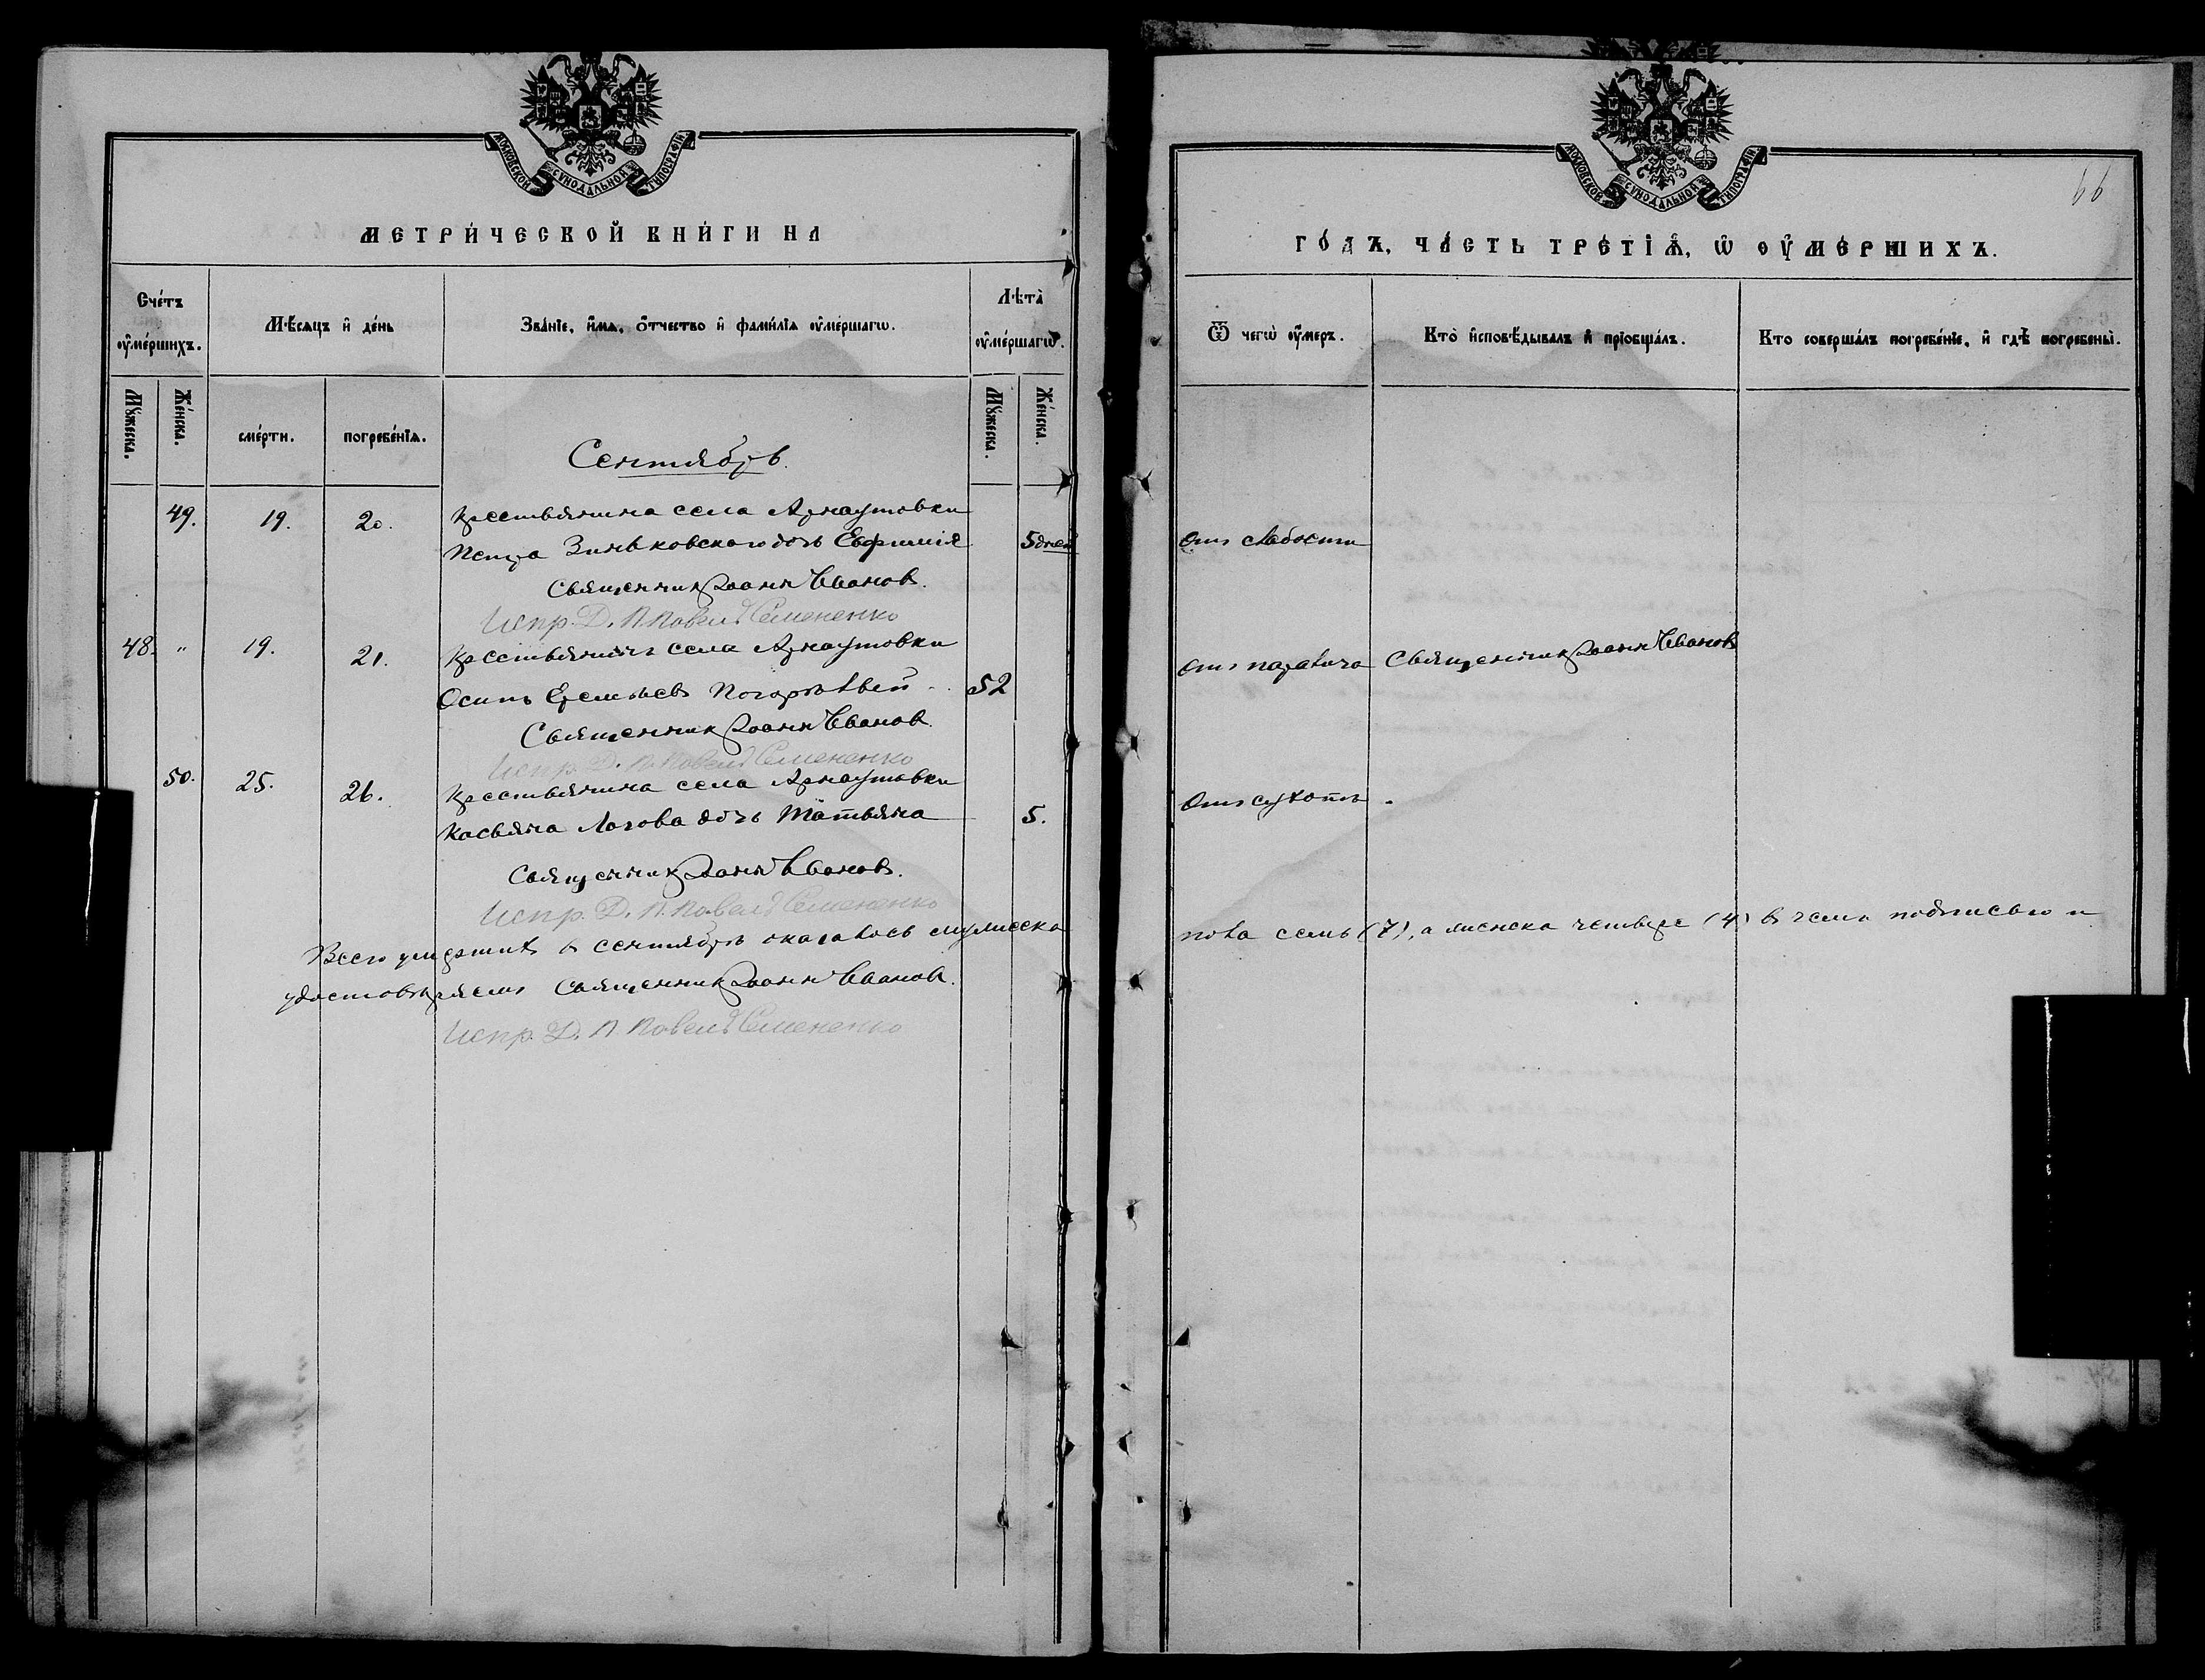 МОСКОВСКОЙ СѴНОДАЛЬНОЙ ТИПОГРАФІИ.
МЕТРИ́ЧЕСКОЙ КНИ́ГИ НА
Сче́тъ ᲂу҆ме́ршихъ.
Мѣ́сяцъ и҆ де́нь
Зва́нїе, и҆́мя, ѻ҆́тчество и҆ фами́лїя ᲂу҆ме́ршагѡ.
Лѣ́та̀ ᲂу҆ме́ршагѡ.
Мꙋ́жеска.
Же́нска.
сме́рти.
погребе́нїѧ.
Мꙋ́жеска.
Же́нска.
Сентябрь.
49. 19. 20. Крестьянина села Арнаутовки
Петра Зиньковскаго дочь Евфимія 5 дней
Священник Іоанн Иванов.
Испр. Д. П. Павелъ Семененко
48. " 19. 21. Крестьянинъ села Арнаутовки
Осипъ Еремѣевъ Погорѣлый 52
Священник Іоанн Иванов.
Испр. Д. П. Павелъ Семененко
50. 25. 26. Крестьянина села Арнаутовки
Касьяна дочь Татьяна 5.
Священник Іоанн Иванов.
Испр. Д. П. Павелъ Семененко
Всего умершихъ в сентябрѣ оказалось мужеска
удостовѣряемъ Священник Іоанн Иванов.
Испр. Д. П. Павелъ Семененко
МОСКОВСКОЙ СѴНОДАЛЬНОЙ ТИПОГРАФІИ.
66
ГО́ДЪ, ЧА́СТЬ ТРЕ́ТЇѦ, Ѡ҆ ОУ҆МЕ́РШИХЪ.
Ѿ чегѡ̀ ᲂу҆́меръ.
Кто̀ и҆сповѣ́дывалъ и҆ прїобща́лъ.
Кто соверша́лъ погребе́нїе, и҆ гдѣ̀ погребены̀.
От слабости
От паралича Священник Іоанн Иванов
От сухотъ.
пола семь (7), а женска четыре (4) в чемъ подписью и